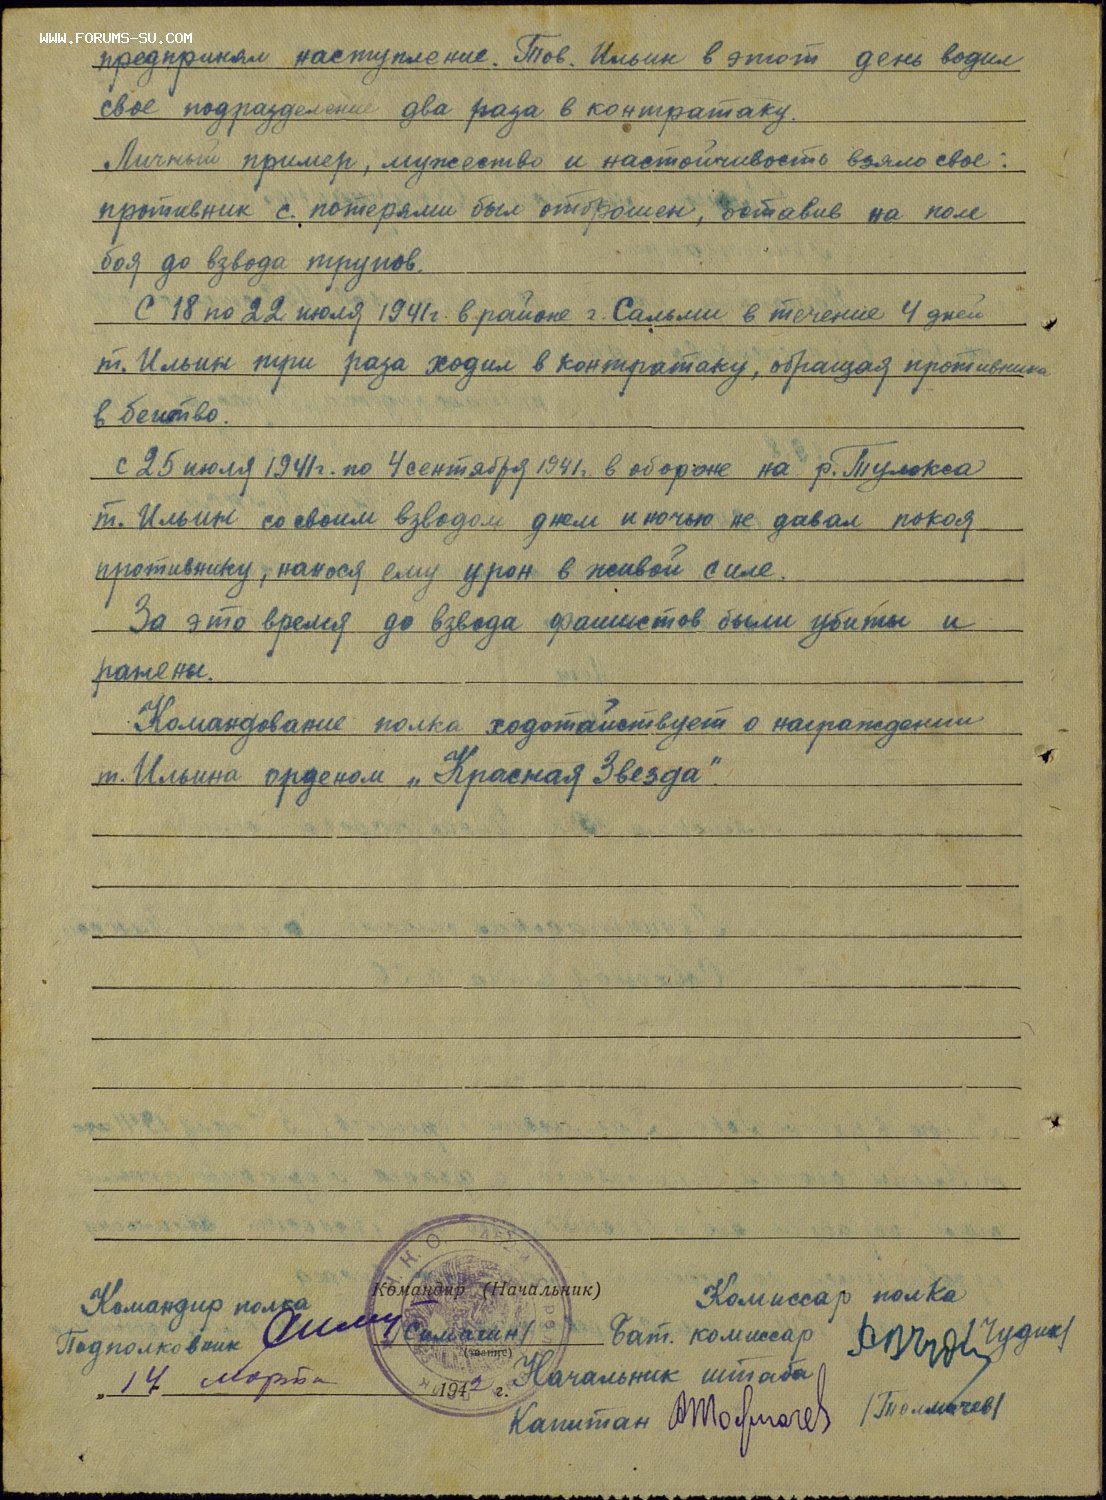 WWW.FORUMS-SU.COM
предпринял наступление. Тов. Ильин в этот день водил
свое подразделение два раза в контратаку.
Личный пример, мужество и настойчивость взяло свое:
противник с потерями был отброшен, оставив на поле
боя до взвода трупов.
С 18 по 22 июля 1941г. в районе г. Сальми в течение 4 дней
т. Ильин три раза ходил в контратаку, обращая противника
в бегство.
с 25 июля 1941г. по 4 сентября 1941г. в обороне на р. Тулокса
т. Ильин со своим взводом днем и ночью не давал покоя
противнику, нанося ему урон в живой силе.
За это время до взвода фашистов были убиты и
ранены.
Командование полка ходотайствует о награждении
т. Ильина орденом „Красная Звезда".
Н.К.О.
Командир (Начальник)
Командир полка
Комиссар полка
Подполковник /Симагин/
Бат. комиссар /Чудин/
(звание)
„17 марта 1942 г.
Начальник штаба
Капитан /Толмачев/